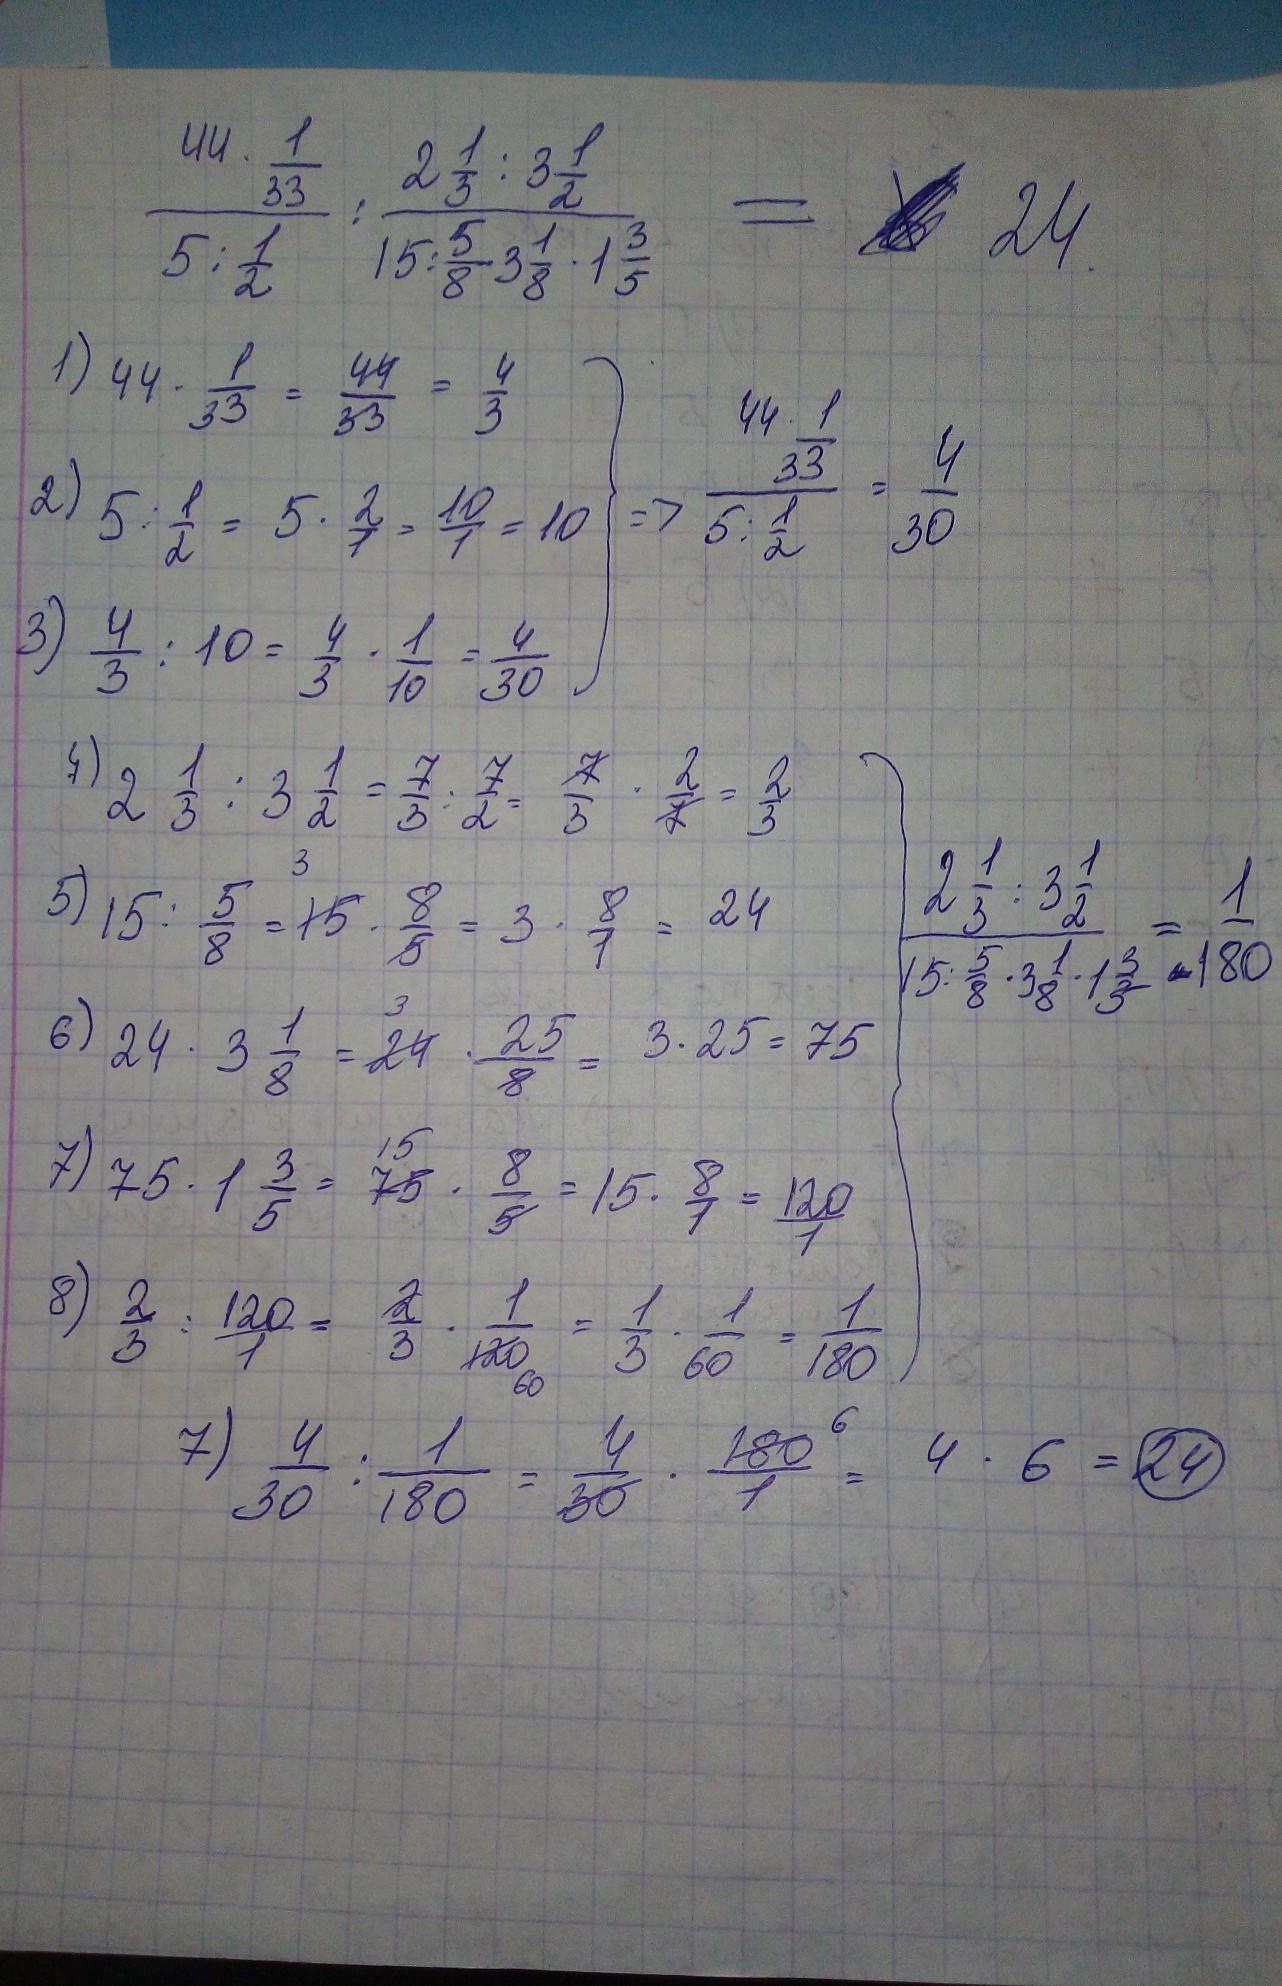 44 · 1/33 / 5 : 1/2 : 2 1/3 : 3 1/2 / 15 : 5/8 · 3 1/8 · 1 3/5 = 24.
1) 44 · 1/33 = 44/33 = 4/3
2) 5 : 1/2 = 5 · 2/1 = 10/1 = 10
3) 4/3 : 10 = 4/3 · 1/10 = 4/30
=> 44 · 1/33 / 5 : 1/2 = 4/30
4) 2 1/3 : 3 1/2 = 7/3 : 7/2 = 7/3 · 2/7 = 2/3
5) 15 : 5/8 = 15 3 · 8/5 = 3 · 8/1 = 24
6) 24 · 3 1/8 = 24 3 · 25/8 = 3 · 25 = 75
7) 75 · 1 3/5 = 75 15 · 8/5 = 15 · 8/1 = 120/1
8) 2/3 : 120/1 = 2/3 · 1/120 60 = 1/3 · 1/60 = 1/180
2 1/3 : 3 1/2 / 15 : 5/8 · 3 1/8 · 1 3/3 = 1/180
7) 4/30 : 1/180 = 4/30 · 180 6/1 = 4 · 6 = 24